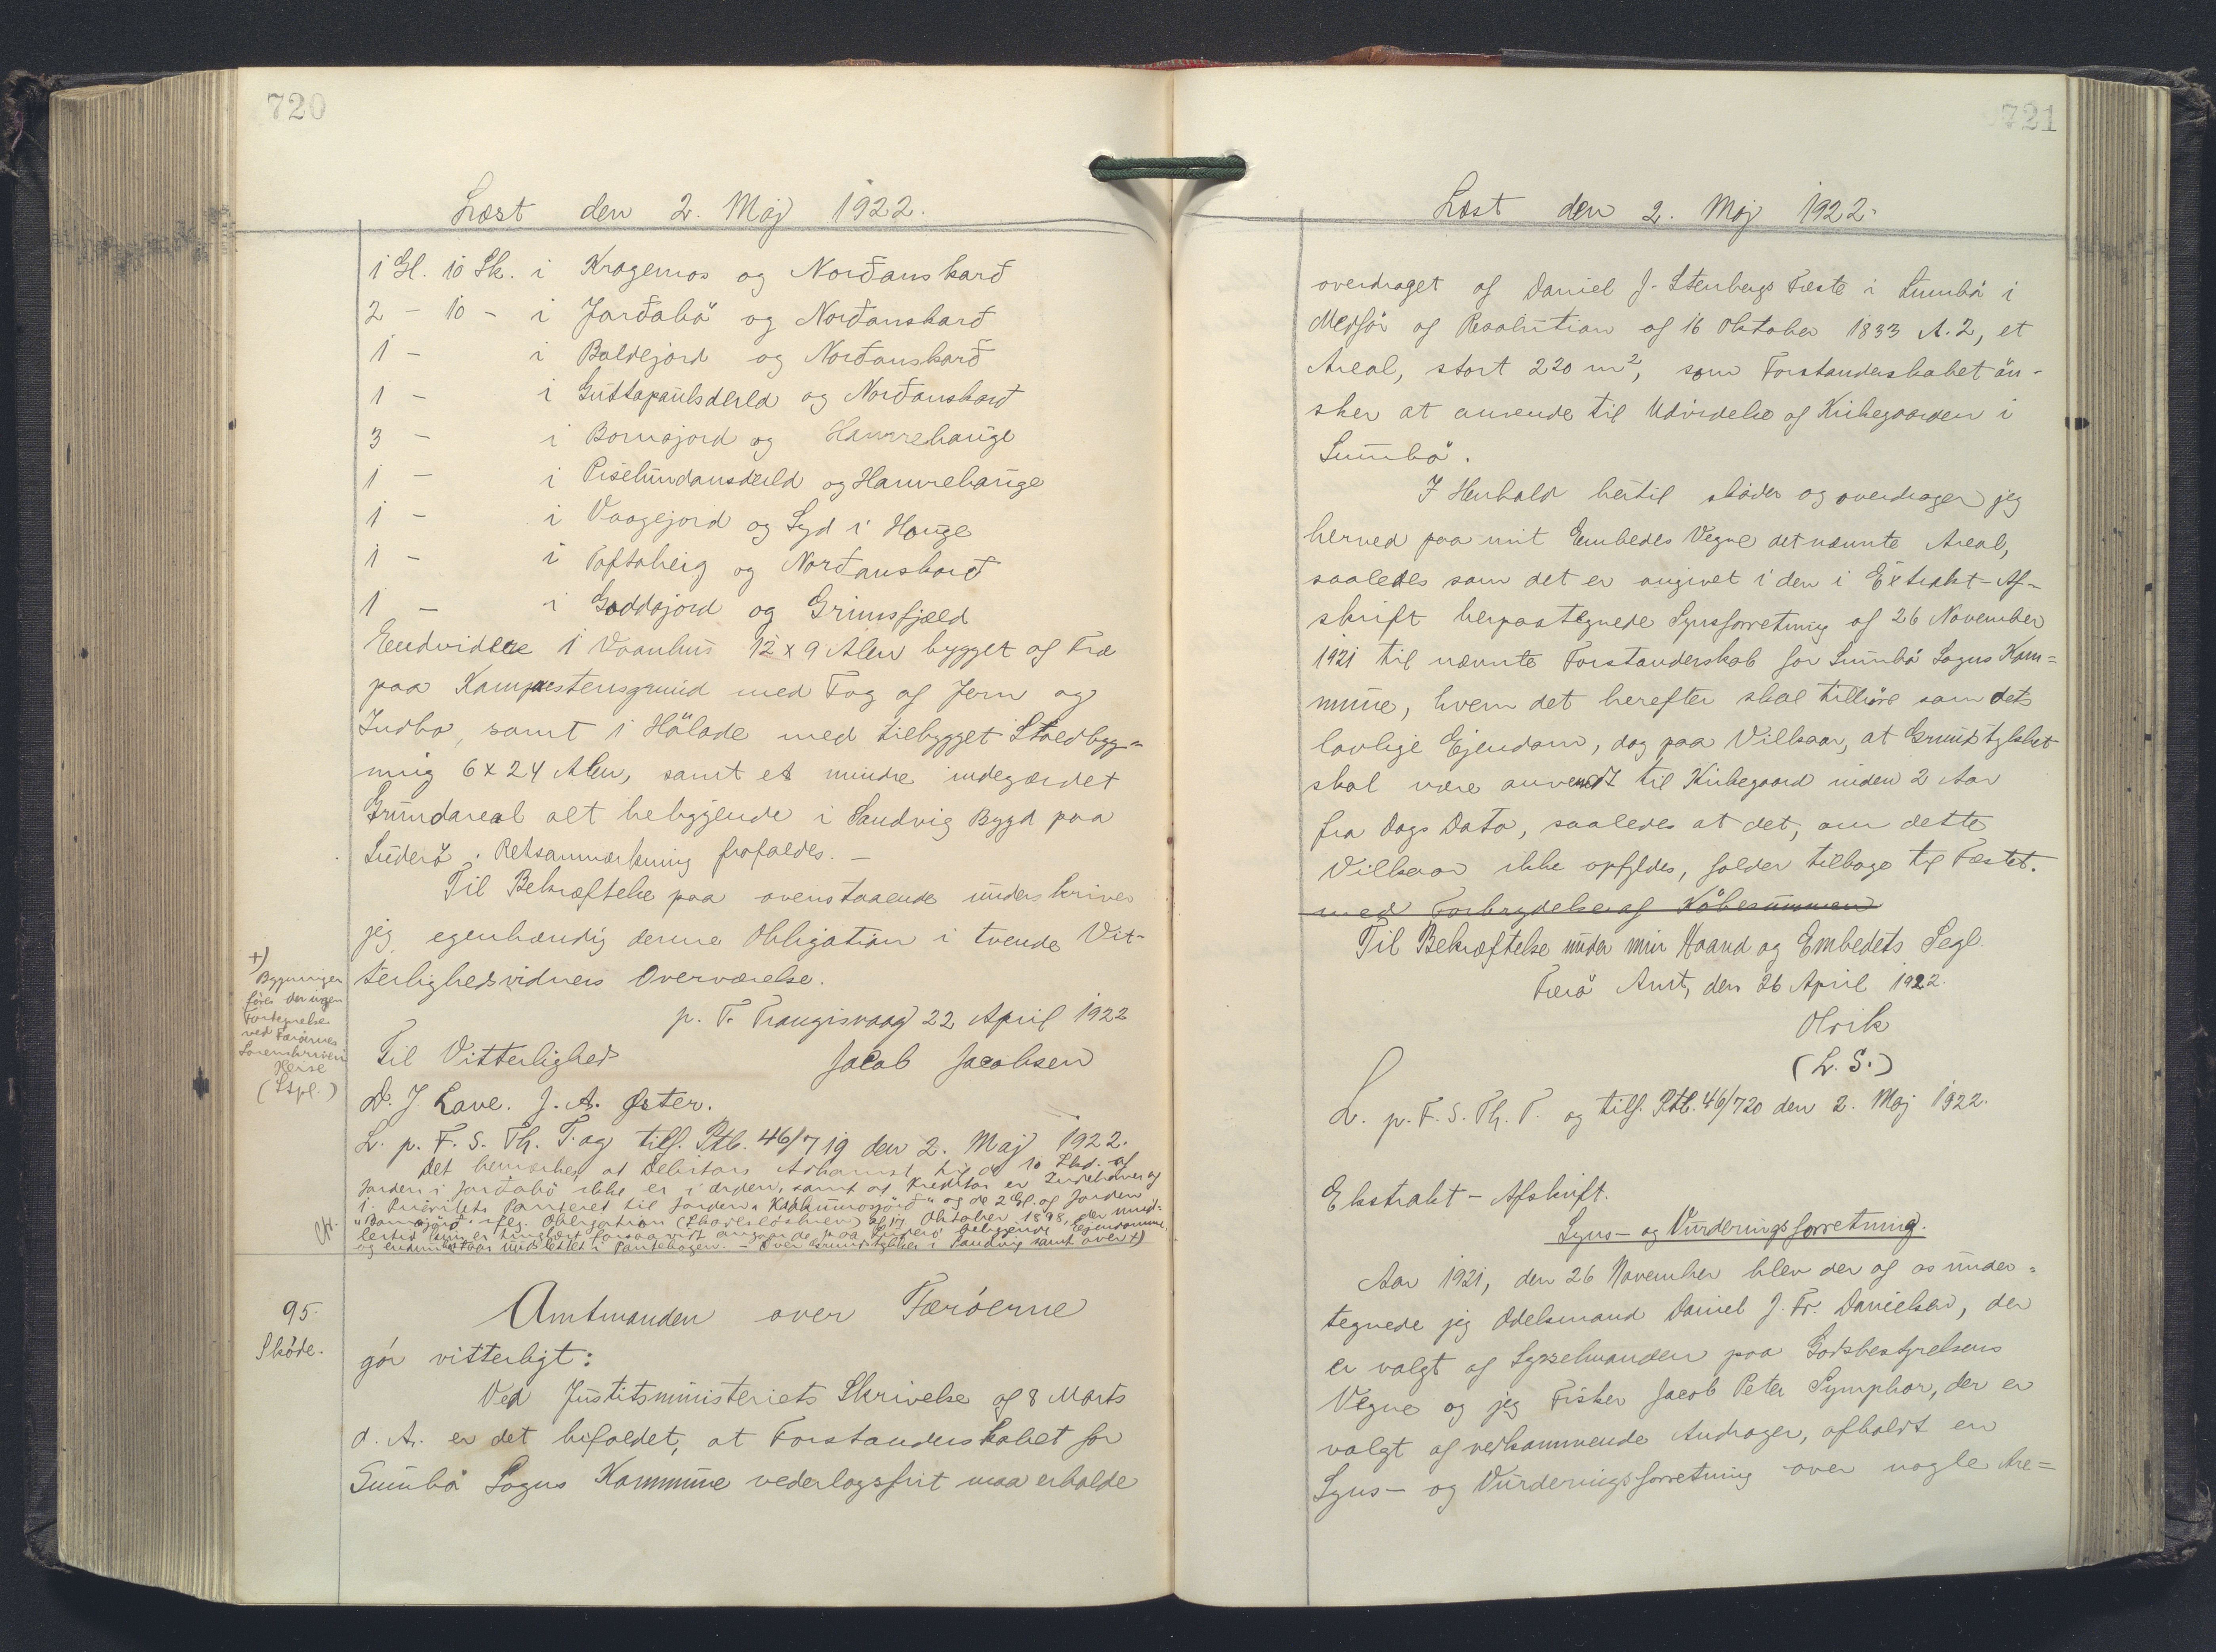 720
Læst den 2. Maj 1922.
1 Gl. 10 Sk. i Kragemos og Norðanskarð
2 - 10 - i Jarðabö og Norðanskarð
1 - i Baldejord og Norðanskarð
1 - i Guttapaulsdeild og Norðanskarð
3 - i Bornajord og Hamrehauge
1 - i Piselundansdeild og Hamrehauge
1 - i Vaagejord og Syd i Hauge
1 - i Toftaheig og Norðanskarð
1 - i Gaddajord og Grimsfjæld
Eendvidere 1 Vaanhus 12 x 9 Alen bygget af Træ
paa Kampestensgrund med Tag af Jern og
Indbo, samt 1 Hölade med tilbygget Staldbyg-
ning 6 x 24 Alen, samt et mindre indegærdet
Grundareal alt beliggende i Sandvig Bygd paa
Suderö. Retsanmærkning frafaldes. -
Til Bekræftelse paa ovenstaaende underskriver
jeg egenhændig denne Obligation i tvende Vit-
terlighedsvidners Overværelse.
p. T. Trangisvaag 22 April 1922
Til Vitterlighed Jacob Jacobsen
D. J. Lave. J. A. Øster.
L. p. F. S. Th. T. og tilf. Ptb. 46/719 den 2. Maj 1922.
Det bemærkes, at Debitors Adkomst til de 10 Skd. af
Jorden i Jarðabö ikke er i orden, samt at Kreditor er Indehaver af
1. Prioritets Panteret til Jorden og de 2 Gl. af Jorden
"Bornajord" iflg. Obligation (Skadesløsbrev) af 17 Oktober 1898, der
er tinglæst forsaavidt angaar de paa Suderö beliggende Ejendomme
og endnu udslettet i Pantebogen. - Over Grundstykket i Sandvig samt over +)
+)
Bygningen
föres der ingen
Fortegnelse
ved Færöernes
Sorenskriveri
Herse
(Stpl.)
95.
Sköde.
Amtmanden over Færöerne
gör vitterligt:
Ved Justitsministeriets Skrivelse af 8 Marts
d. A. er det bifaldet, at Forstanderskabet for
Sumbö Sogns Kommune vederlagsfrit maa erholde
721
Læst den 2. Maj 1922.
overdraget af Daniel J. Stenbergs Fæste i Sumbö i
Medför af Resolution af 16 Oktober 1833 A. 2, et
Areal, stort 220 m², som Forstanderskabet ön-
sker at anvende til Udvidelse af Kirkegaarden i
Sumbö.
I Henhold hertil skøder og overdrager jeg
herved paa mit Embedes Vegne det nævnte Areal,
saaledes som det er angivet i den i Extrakt-Af-
skrift herpaategnede Synsforretning af 26 November
1921 til nævnte Forstanderskab for Sumbö Sogns Kom-
mune, hvem det herefter skal tilhöre som dets
lovlige Ejendom, dog paa Vilkaar, at Grundstykket
skal være anvendt til Kirkegaard inden 2 Aar
fra Dags Dato, saaledes at det, om dette
Vilkaar ikke opfyldes, falder tilbage til Fæstet.
med Forbrydelse af Köbesummen
Til Bekræftelse under min Haand og Embedets Segl.
Færö Amt, den 26 April 1922.
Olrik
(L. S.)
L. p. F. S. Th. T. og tilf. Ptb. 46/720 den 2. Maj 1922.
Ekstrakt - Afskrift.
Syns- og Vurderingsforretning.
Aar 1921, den 26 November blev der af os under-
tegnede jeg Odelsmand Daniel J. Fr. Danielsen, der
er valgt af Sysselmanden paa Godsbestyrelsens
Vegne og jeg Fisker Jacob Peter Symphor, der er
valgt af vedkommende Andrager, afholdt en
Syns- og Vurderingsforretning over nogle Are-